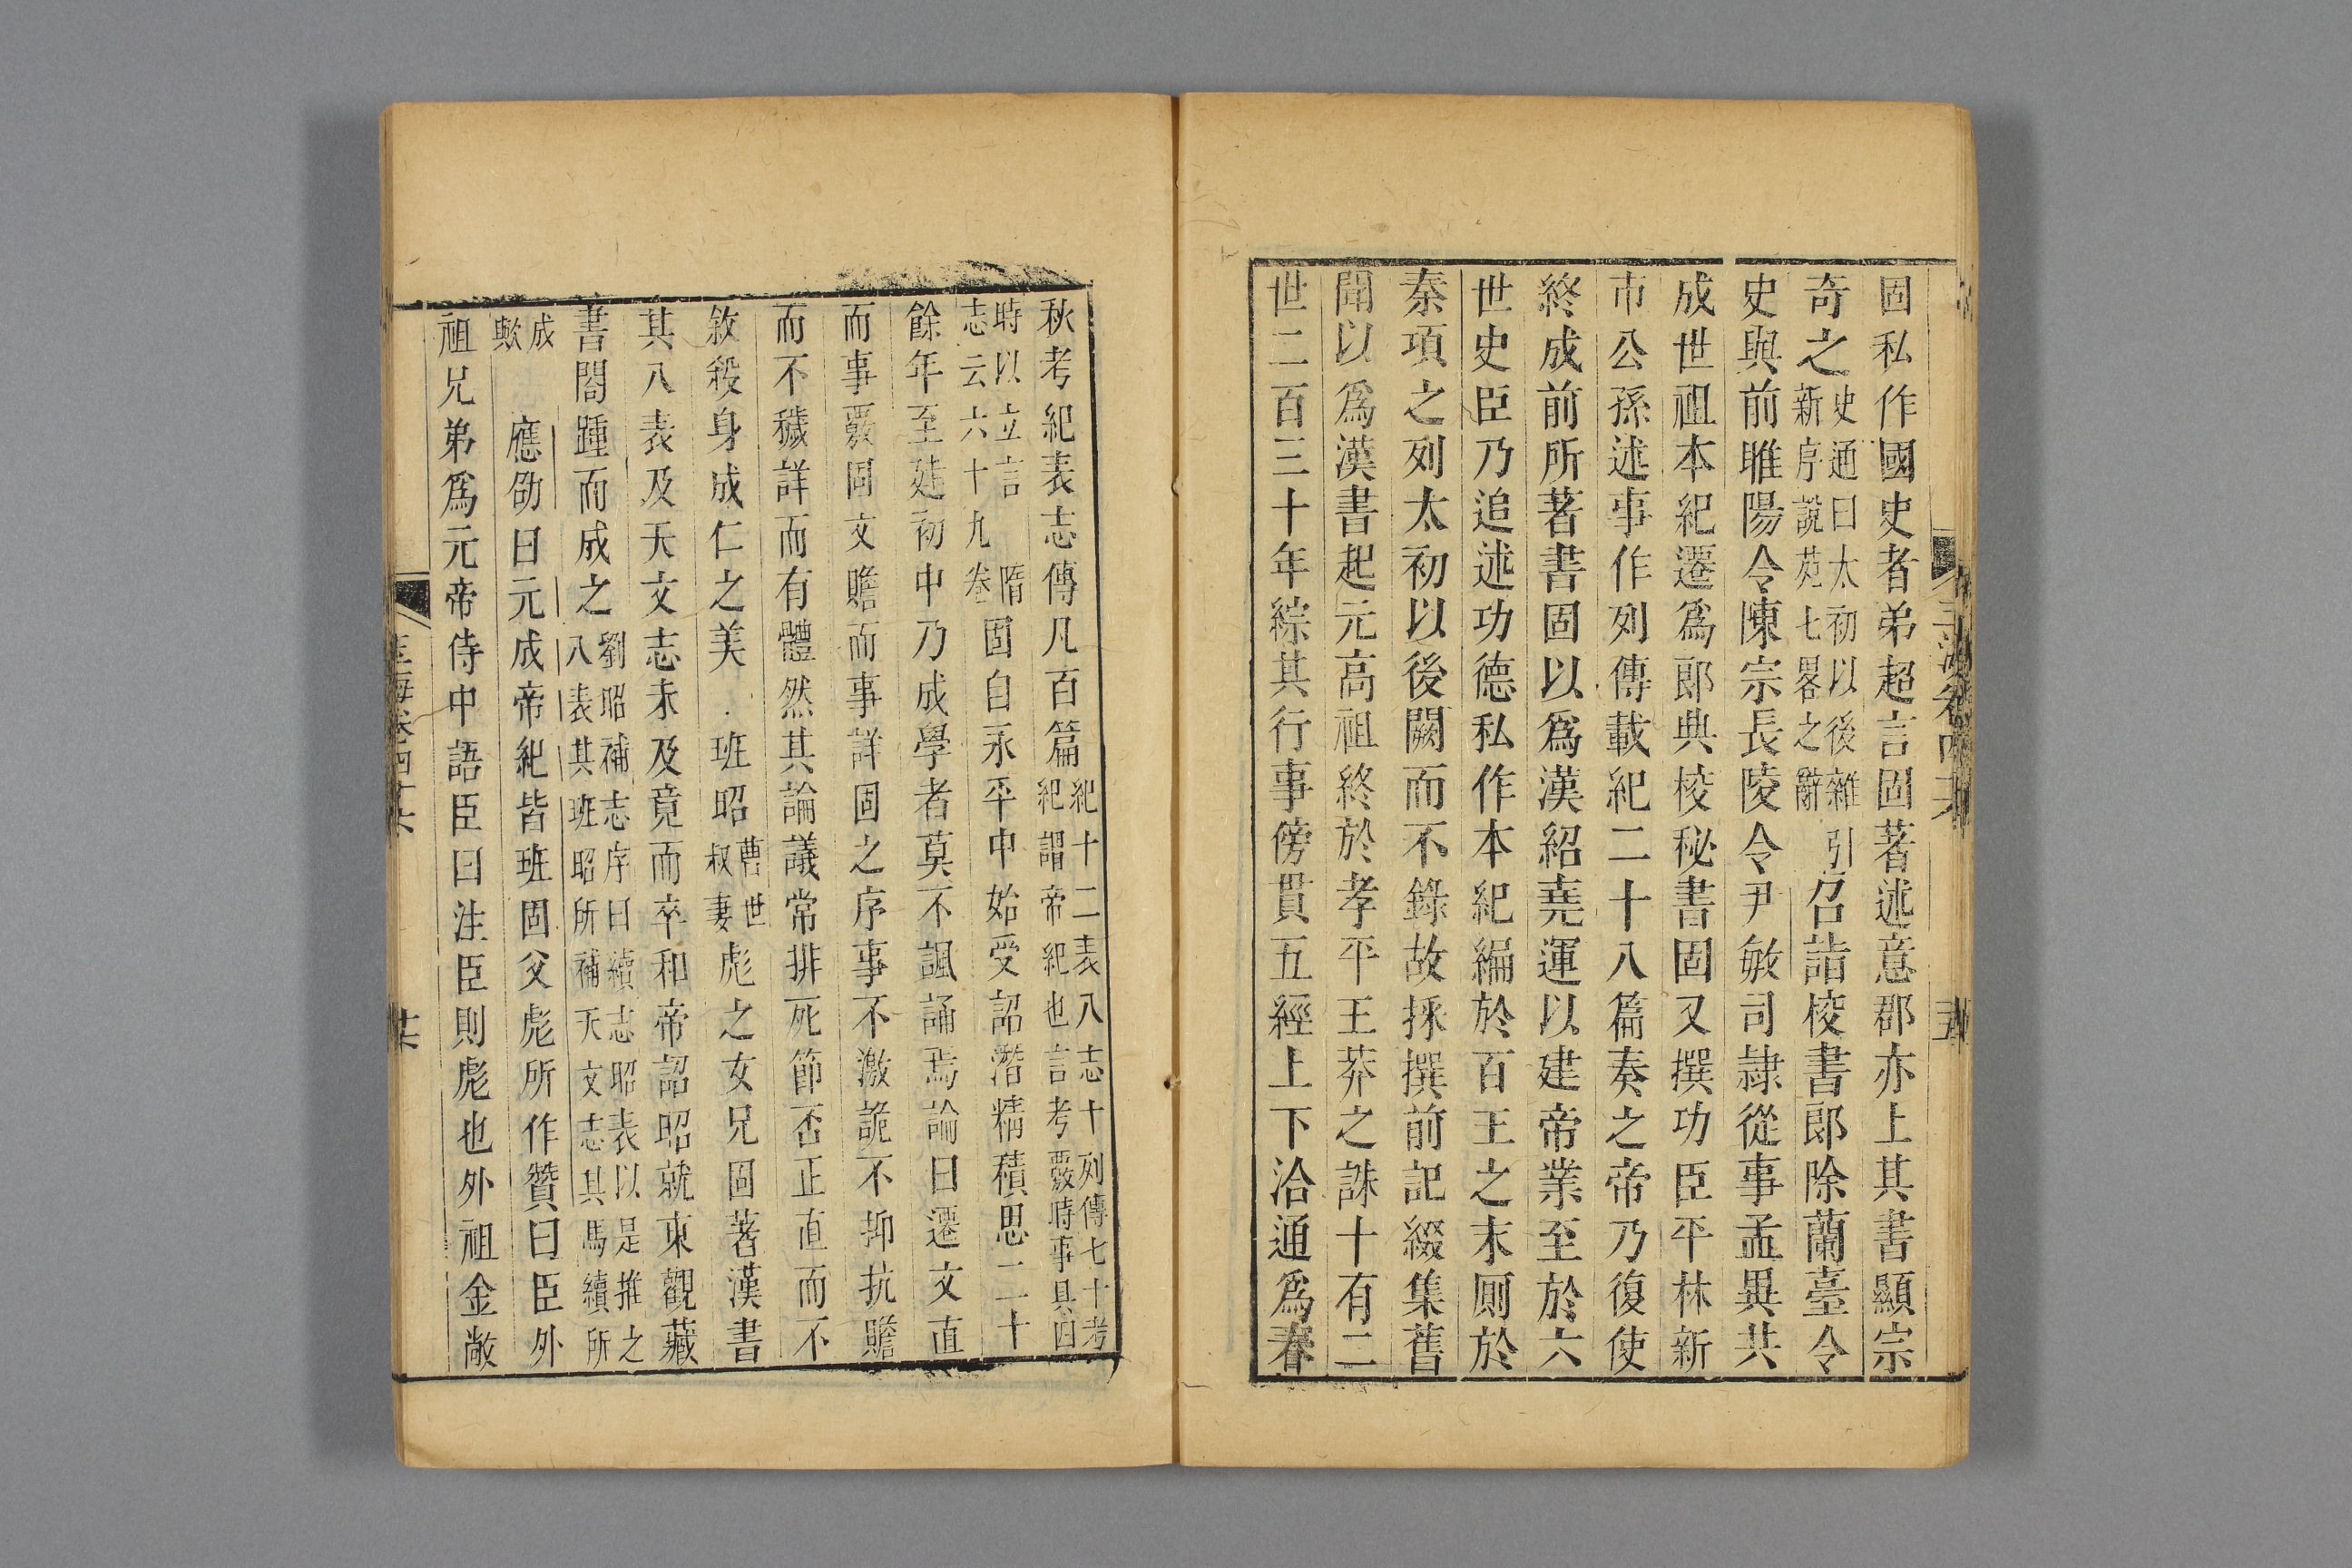 固私作國史者弟超言固著述意郡亦上其書顯宗
奇之史通曰太初以後雜引新序說苑七畧之辭召詣校書郎除蘭臺令
史與前睢陽令陳宗長陵令尹敏司隷從事孟異共
成世祖本紀遷爲郎典校秘書固又撰功臣平林新
市公孫述事作列傳載紀二十八篇奏之帝乃復使
終成前所著書固以爲漢紹堯運以建帝業至於六
世史臣乃追述功德私作本紀編於百王之末厠於
秦項之列太初以後闕而不錄故採撰前記綴集舊
聞以爲漢書起元高祖終於孝平王莽之誅十有二
世二百三十年綜其行事傍貫五經上下洽通爲春
秋考紀表志傳凡百篇紀十二表八志十列傳七十考紀謂帝紀也言考覈時事具四
時以立言隋志云六十九卷固自永平中始受詔潛精積思二十
餘年至建初中乃成學者莫不諷誦焉論曰遷文直
而事覈固文贍而事詳固之序事不激詭不抑抗贍
而不穢詳而有體然其論議常排死節否正直而不
敘殺身成仁之美班昭曹世叔妻彪之女兄固著漢書
其八表及天文志未及竟而卒和帝詔昭就東觀藏
書閣踵而成之劉昭補志序曰續志昭表以是推之八表其班昭所補天文志其馬續所
成歟 應劭曰元成帝紀皆班固父彪所作贊曰臣外
祖兄弟爲元帝侍中語臣曰注臣則彪也外祖金敞